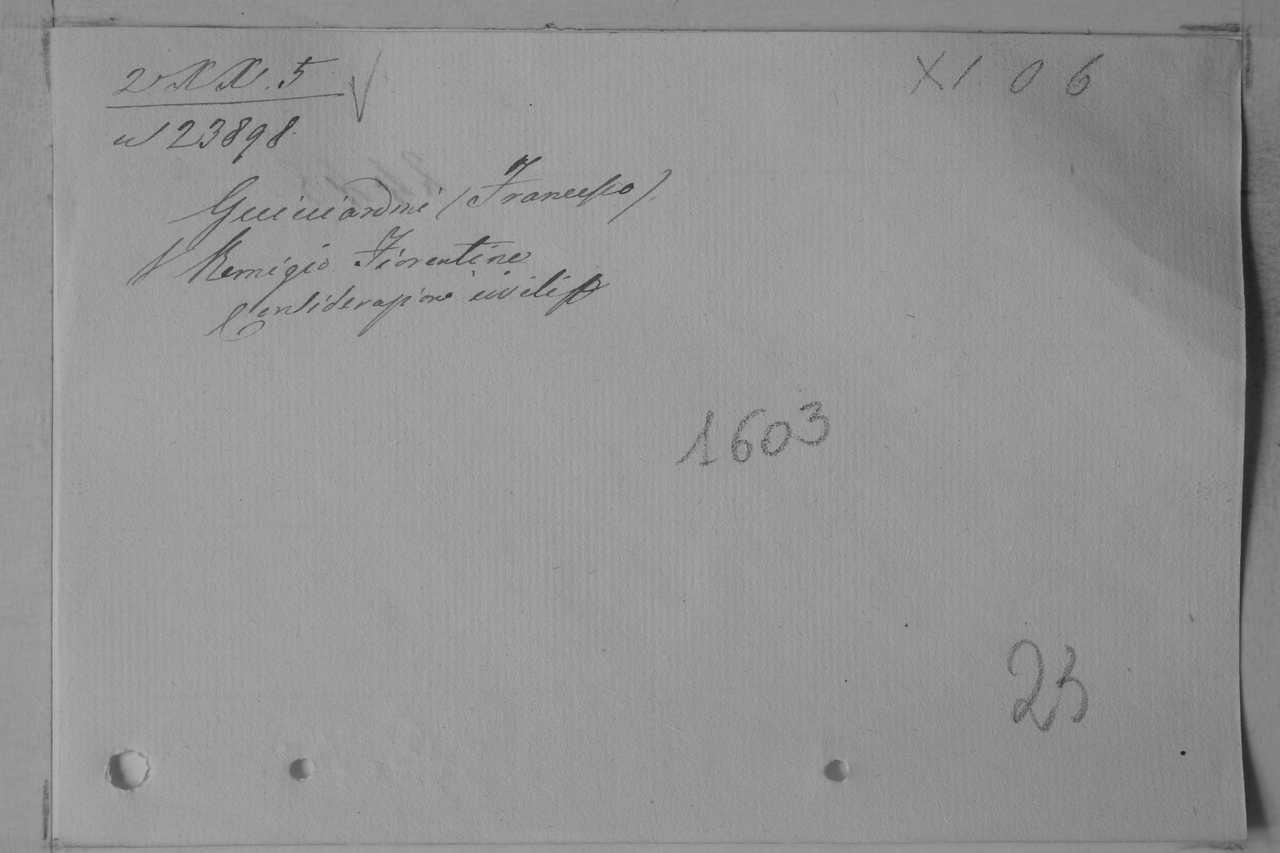 2 XX. 5
XI 0 6
23898
Guicciardini (Francesco).
Remigio Fiorentino
Considerazioni civili
1603
23